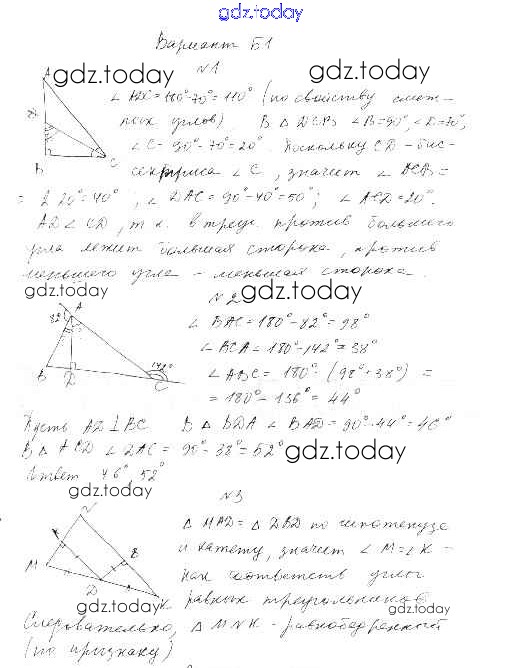 gdz.today
Вариант Б1
gdz.today gdz.today
№1
∠ADC = 180°-70° = 110° (по свойству смеж-
ных углов) В △ DCB ∠B=90°, ∠D=70°,
∠C = 90°-70°=20°. Поскольку CD - бис-
сектриса ∠C, значит ∠ACB =
= 2·20°=40°; ∠DAC = 90°-40°=50°; ∠ACD=20°.
AD < CD, т.к. в треуг. против большего
угла лежит большая сторона, против
меньшего угла - меньшая сторона.
gdz.today gdz.today
№2
A
82°
B
D
C
142°
∠BAC = 180°-82° = 98°
∠BCA = 180°-142° = 38°
∠ABC = 180°-(98°+38°) =
= 180°-136° = 44°
Пусть AD⊥BC В △ BDA ∠BAD = 90°-44° = 46°
В △ ACD ∠DAC = 90°-38° = 52°
gdz.today
Ответ 46°, 52°
gdz.today
№3
N
M
D
B
K
△ MAD = △ DBD по гипотенузе
и катету, значит ∠M = ∠K -
как соответств углы
равных треугольников
gdz.today gdz.today
Следовательно, △ MNK - равнобедренный
(по признаку)
gdz.today